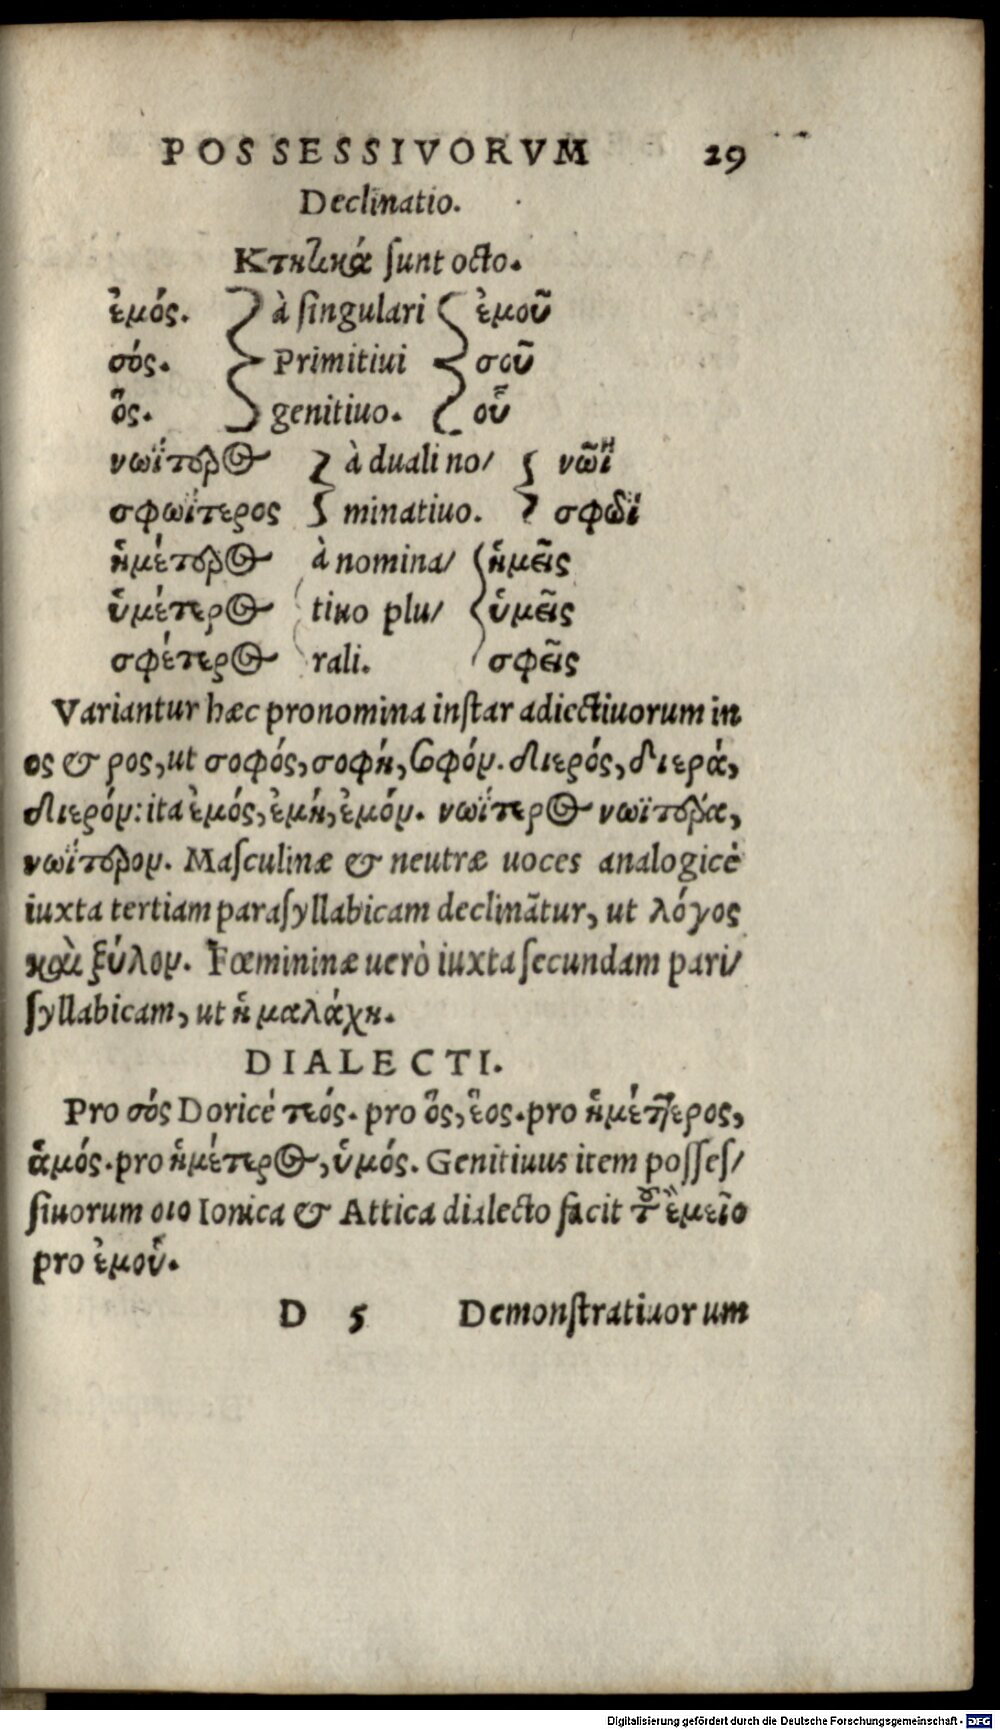 POSSESSIVORVM 29
Declinatio.
Κτητικά sunt octo.
ἐμός. à singulari ἐμοῦ
σός. Primitiui σοῦ
ὅς. genitiuo. οὗ
νωΐτερος à duali no/ νῶϊ
σφωΐτερος minatiuo. σφῶϊ
ἡμέτερος à nomina/ ἡμεῖς
ὑμέτερος tiuo plu/ ὑμεῖς
σφέτερος rali. σφεῖς
Variantur hæc pronomina instar adiectiuorum in
ος & ρος, ut σοφός, σοφή, σοφόν. διερός, διερά,
διερόν: ita ἐμός, ἐμή, ἐμόν. νωΐτερος νωϊτέρα,
νωΐτερον. Masculinæ & neutræ uoces analogicè
iuxta tertiam parasyllabicam declinãtur, ut λόγος
καὶ ξύλον. Fœmininæ uerò iuxta secundam pari/
syllabicam, ut ἡ μαλάχη.
DIALECTI.
Pro σός Doricé τεός. pro ὅς, ἕος. pro ἡμέτερος,
ἁμός. pro ἡμέτερος, ὑμός. Genitiuus item posses/
siuorum οιο Ionica & Attica dialecto facit ἐμεῖο
pro ἐμοῦ.
D 5 Demonstratiuorum
Digitalisierung gefördert durch die Deutsche Forschungsgemeinschaft - DFG